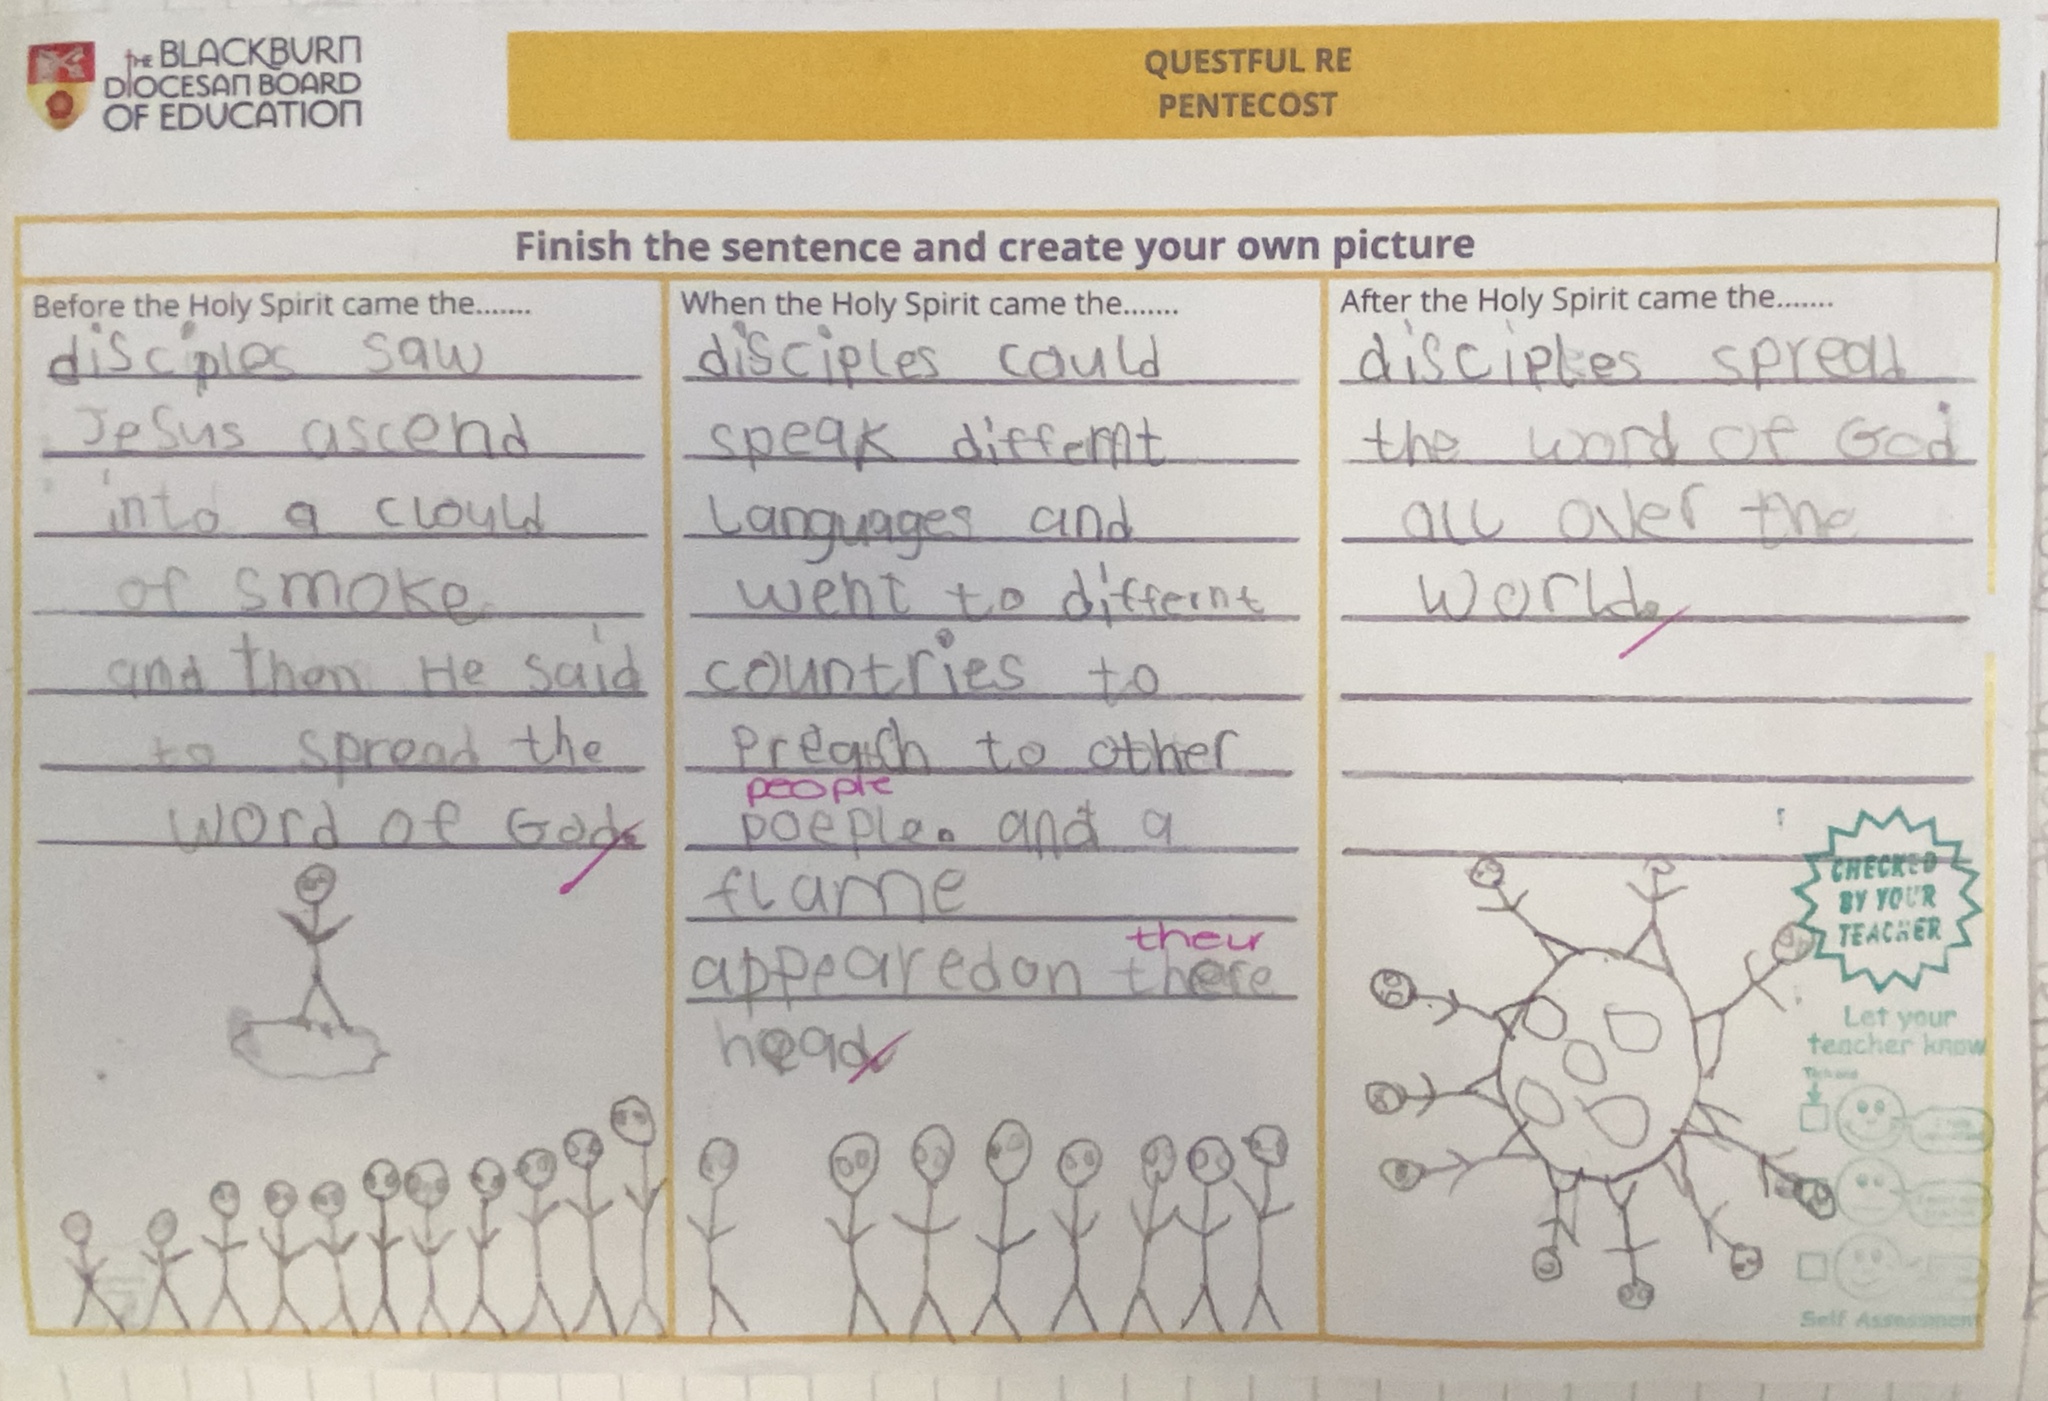 THE BLACKBURN
DIOCESAN BOARD
OF EDUCATION
QUESTFUL RE
PENTECOST
Finish the sentence and create your own picture
Before the Holy Spirit came the.......
disciples saw
Jesus ascend
into a clould
of smoke
and then He said
to spread the
word of God.
When the Holy Spirit came the.......
disciples could
speak differnt
Languages and
went to differnt
countries to
preach to other
people
poeple. and a
flame
their
appeared on there
head
After the Holy Spirit came the.......
disciples spread
the word of God
all over the
world.
CHECKED
BY YOUR
TEACHER
Let your
teacher know
Tick one
Self Assessment